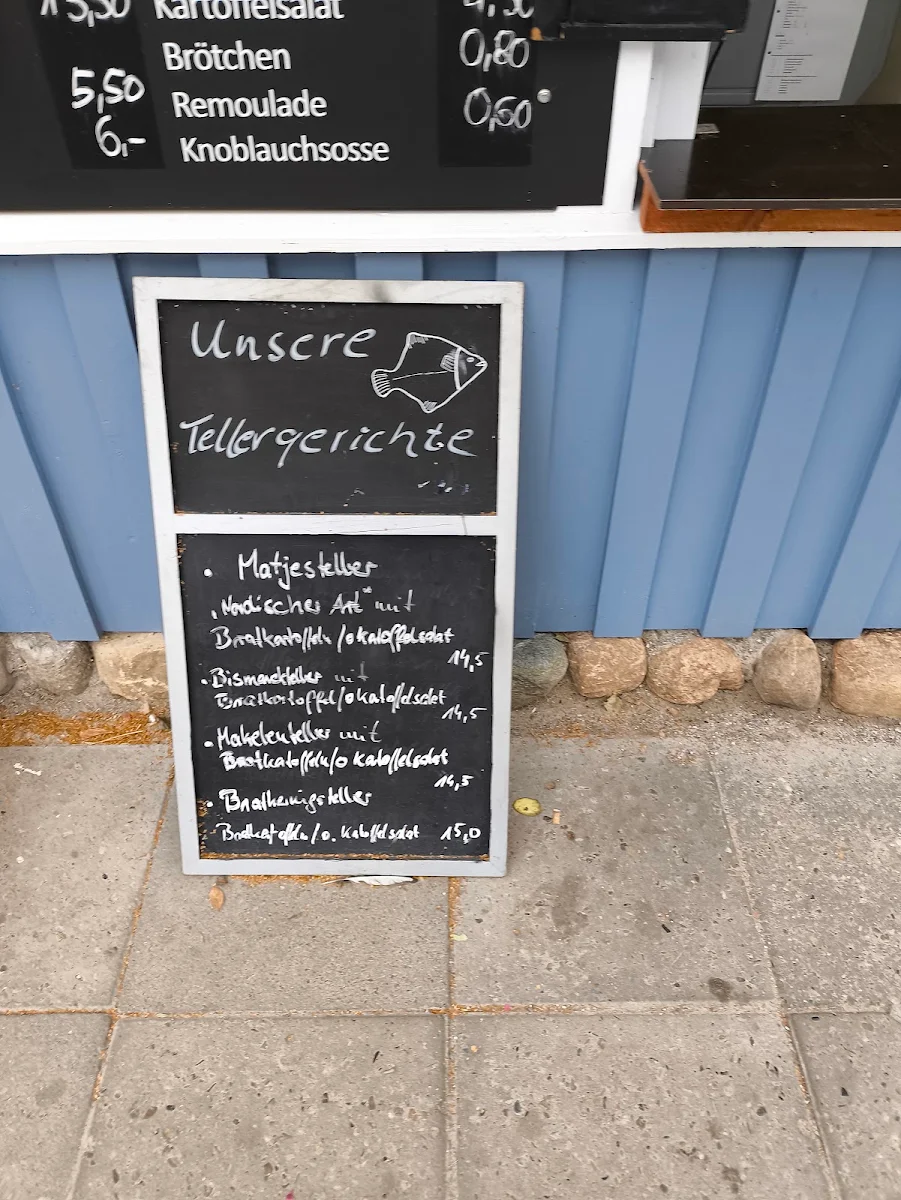 Kartoffelsalat
Brötchen 0,80
5,50 Remoulade 0,60
6,- Knoblauchsosse
Unsere
Tellergerichte
• Matjesteller
"Nordischer Art" mit
Bratkartoffeln/o Kartoffelsalat
14,5
• Bismarckteller mit
Bratkartoffel/o Kartoffelsalat
14,5
• Makrelenteller mit
Bratkartoffeln/o Kartoffelsalat
14,5
• Bratheringsteller
Bratkartoffeln/o. Kartoffelsalat 15,0